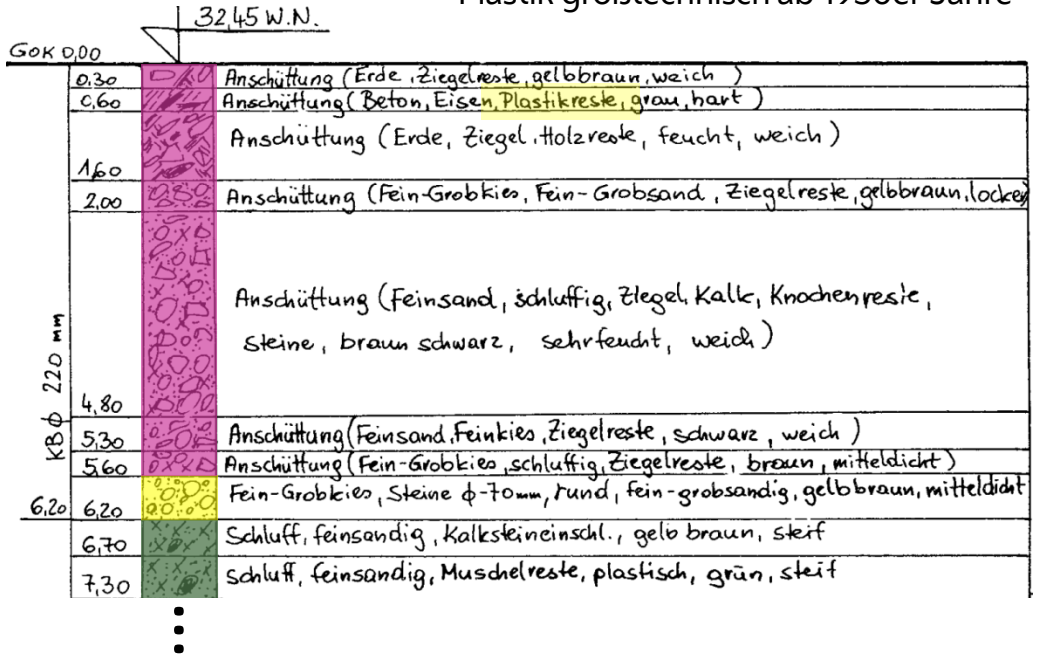 Plastik großtechnisch ab 1950er Jahre
32,45 W.N.
GOK 0,00
0,30 Anschüttung (Erde, Ziegelreste, gelbbraun, weich )
0,60 Anschüttung (Beton, Eisen, Plastikreste, grau, hart )
1,60 Anschüttung (Erde, Ziegel, Holzreste, feucht, weich )
2,00 Anschüttung (Fein-Grobkies, Fein-Grobsand, Ziegelreste, gelbbraun, locker)
Anschüttung (Feinsand, schluffig, Ziegel, Kalk, Knochenreste,
steine, braun schwarz, sehr feucht, weich )
4,80
KBϕ 220 mm
5,30 Anschüttung (Feinsand, Feinkies, Ziegelreste, schwarz, weich )
5,60 Anschüttung (Fein-Grobkies, schluffig, Ziegelreste, braun, mitteldicht )
6,20 6,20 Fein-Grobkies, Steine ϕ-70mm, rund, fein-grobsandig, gelbbraun, mitteldicht
6,70 Schluff, feinsandig, Kalksteineinschl., gelb braun, steif
7,30 Schluff, feinsandig, Muschelreste, plastisch, grün, steif